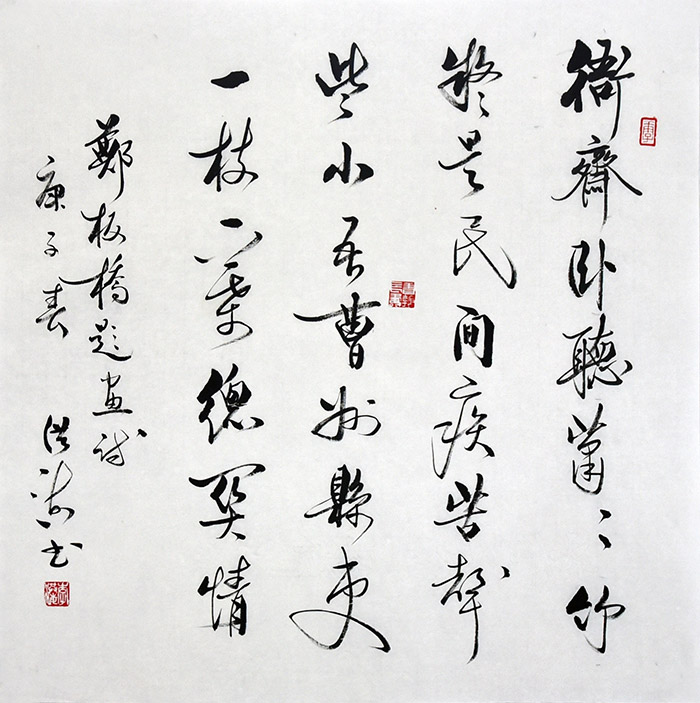 衙齋卧聽蕭〻竹
疑是民間疾苦聲
些小吾曹州縣吏
一枝一葉總關情
鄭板橋題畫詩
庚子春 洪 書